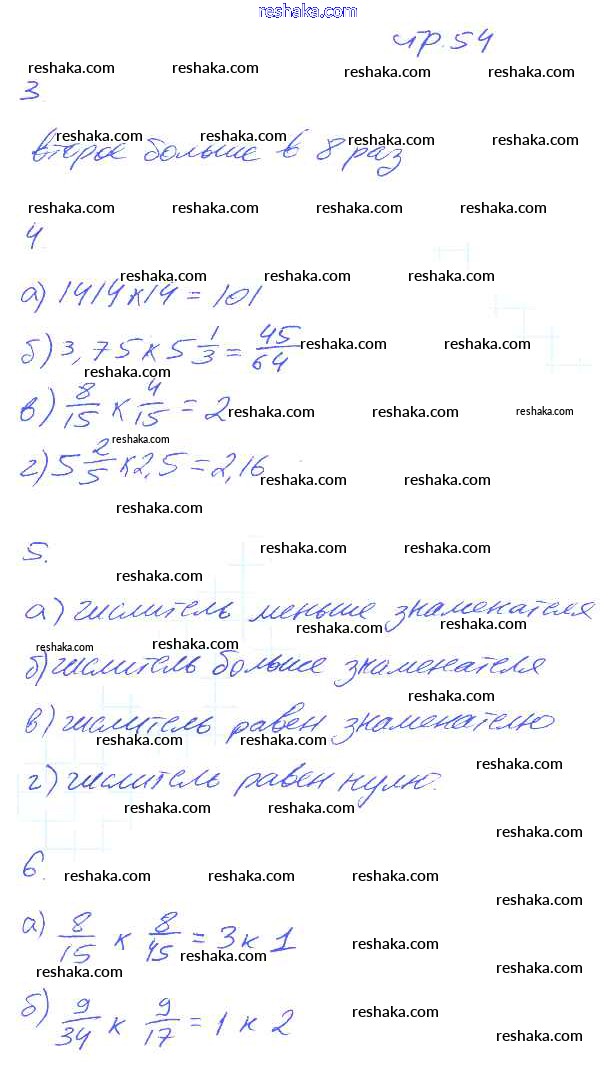 reshaka.com
стр.54
reshaka.com reshaka.com reshaka.com reshaka.com
3.
reshaka.com reshaka.com reshaka.com reshaka.com
второе больше в 8 раз
reshaka.com reshaka.com reshaka.com reshaka.com
4.
reshaka.com reshaka.com reshaka.com
а) 1414 к 14 = 101
reshaka.com reshaka.com
б) 3,75 к 5 1/3 = 45/64
reshaka.com
в) 8/15 к 4/15 = 2
reshaka.com reshaka.com reshaka.com
reshaka.com
г) 5 2/5 к 2,5 = 2,16
reshaka.com reshaka.com
reshaka.com
5.
reshaka.com reshaka.com
reshaka.com
а) числитель меньше знаменателя
reshaka.com reshaka.com
reshaka.com reshaka.com
б) числитель больше знаменателя
reshaka.com
в) числитель равен знаменателю
reshaka.com reshaka.com
reshaka.com
г) числитель равен нулю.
reshaka.com reshaka.com
reshaka.com
6.
reshaka.com reshaka.com reshaka.com
reshaka.com
а) 8/15 к 8/45 = 3 к 1
reshaka.com reshaka.com
reshaka.com reshaka.com
б) 9/34 к 9/17 = 1 к 2
reshaka.com
reshaka.com